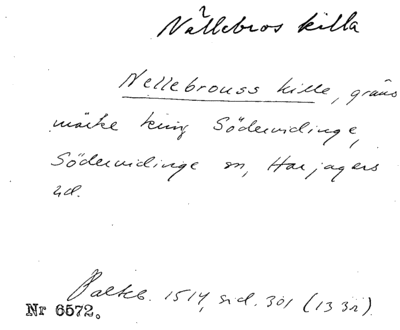 Nällebros killa
Nellebrouss kille, gräns
märke kring Södervidinge,
Södervidinge sn, Harjagers
hd.
Palteb. 1514, sid. 301 (133r).
Nr 6572.